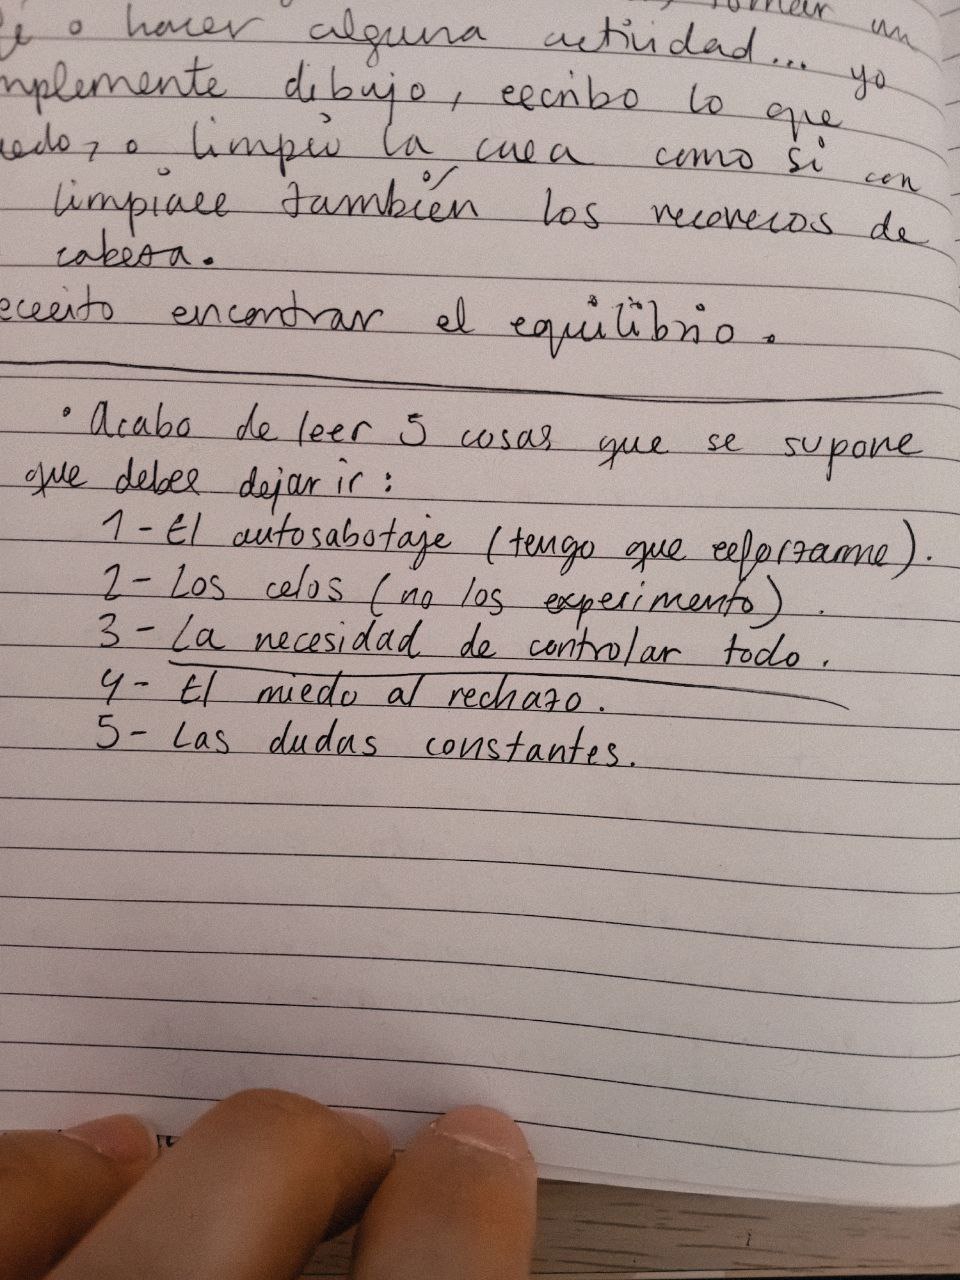 tomar un
o hacer alguna actividad... yo
mplemente dibujo, escribo lo que
uedo, o limpio la casa como si con
limpiase también los recovecos de
cabeza.
ecesito encontrar el equilibrio.
• Acabo de leer 5 cosas que se supone
que debes dejar ir:
1- El autosabotaje (tengo que esforzarme).
2- Los celos (no los experimento).
3- La necesidad de controlar todo.
4- El miedo al rechazo.
5- Las dudas constantes.